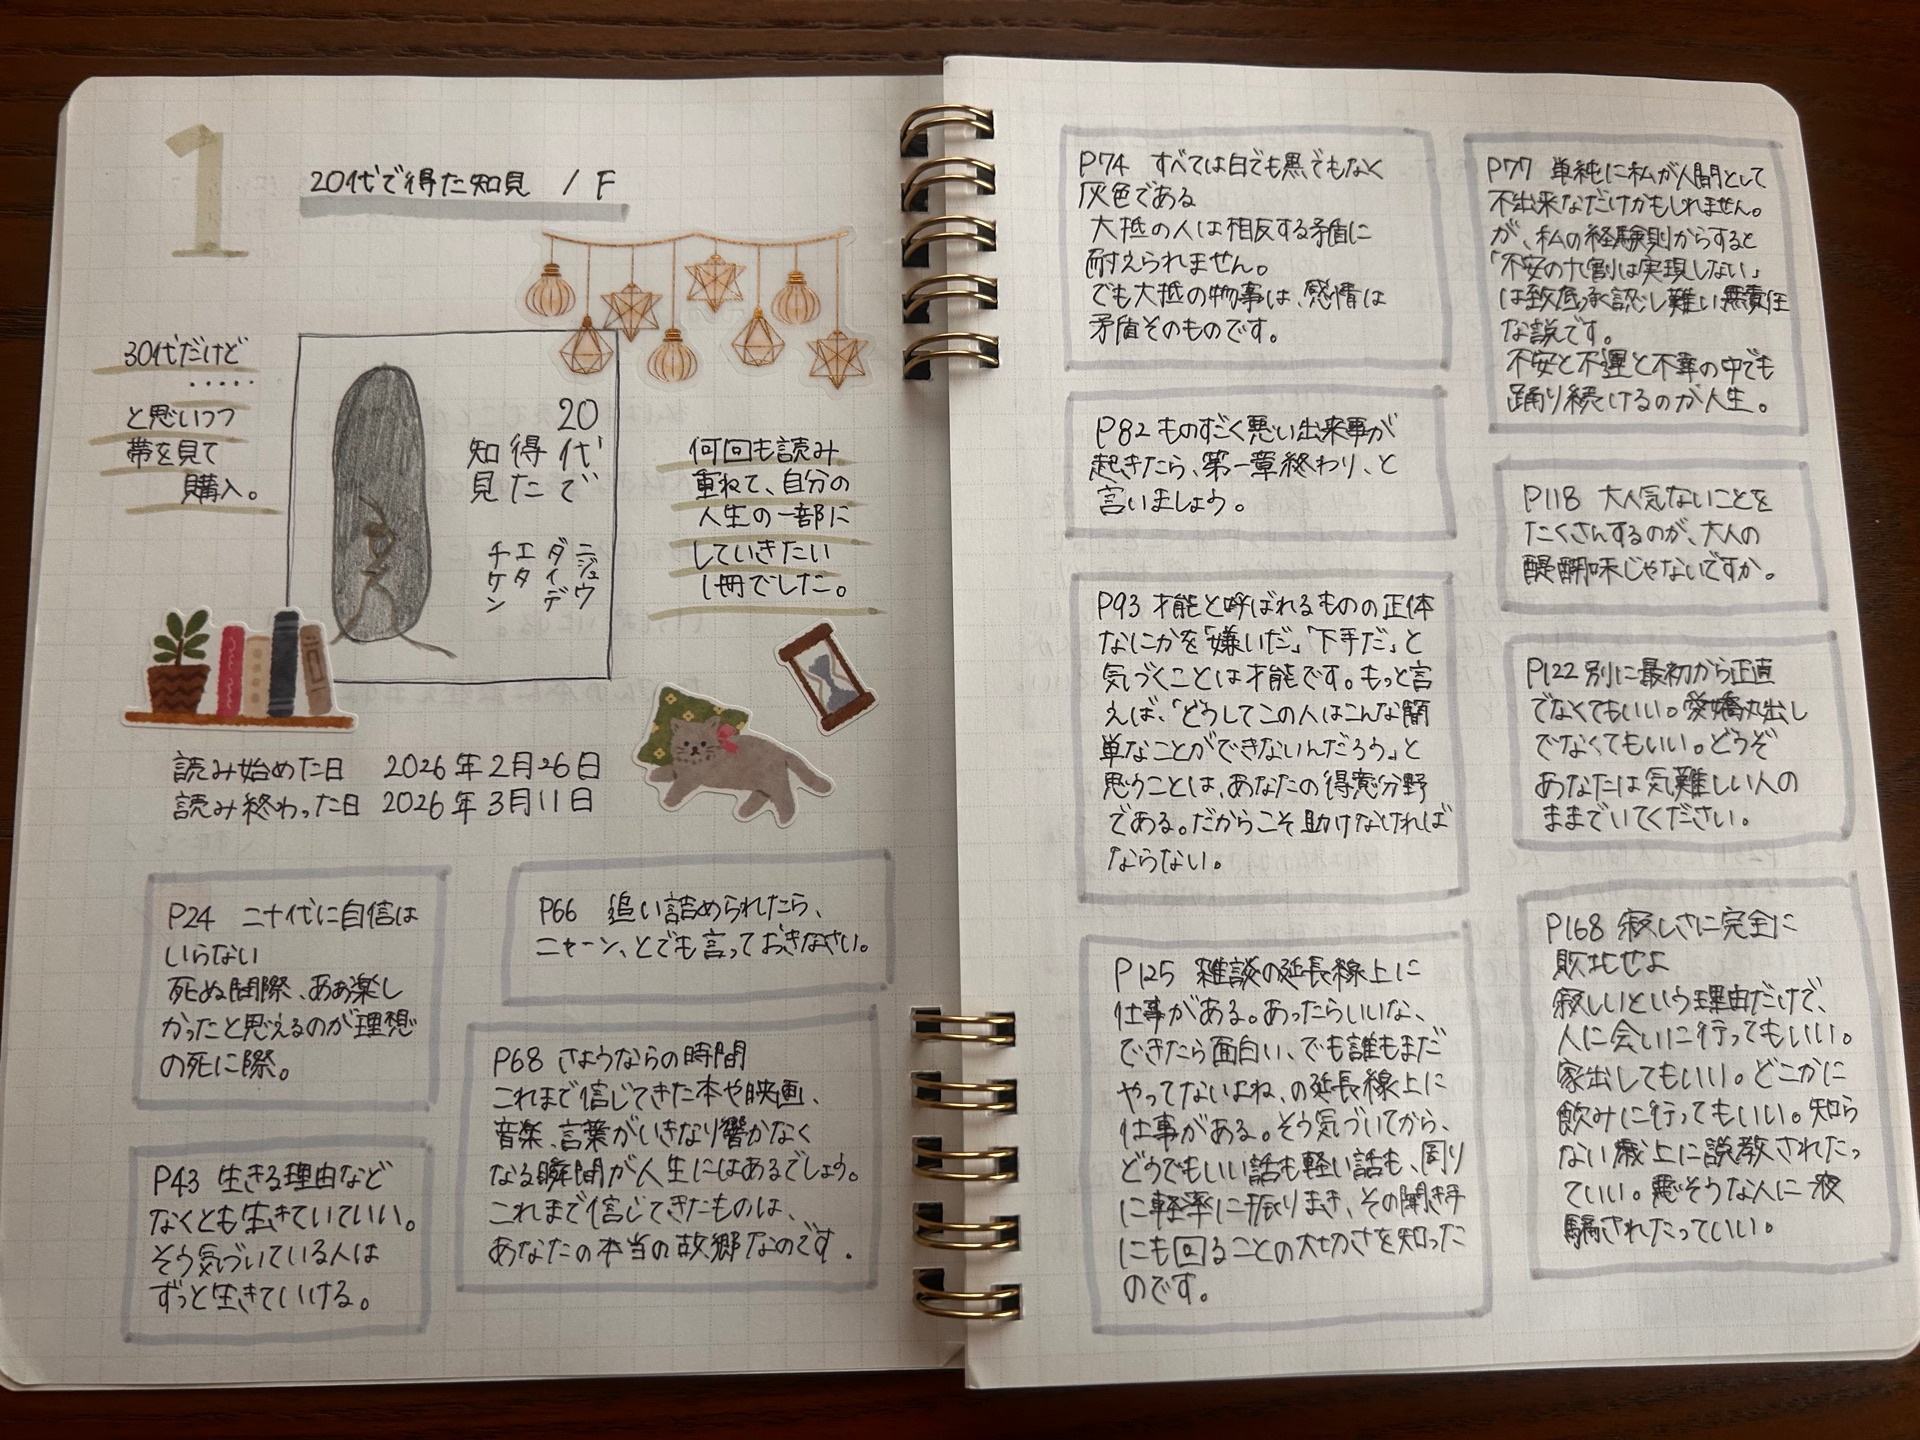 1
20代で得た知見 / F
30代だけど
・・・・・
と思いつつ
帯を見て
購入。
20
代で
得た
知見
ニジュウ
ダイデ
エタ
チケン
何回も読み
重ねて、自分の
人生の一部に
していきたい
1冊でした。
読み始めた日 2026年2月26日
読み終わった日 2026年3月11日
P24 二十代に自信は
いらない
死ぬ間際、あぁ楽し
かったと思えるのが理想
の死に際。
P66 追い詰められたら、
ニャーン、とでも言っておきなさい。
P43 生きる理由など
なくとも生きていていい。
そう気づいている人は
ずっと生きていける。
P68 さようならの時間
これまで信じてきた本や映画、
音楽、言葉がいきなり響かなく
なる瞬間が人生にはあるでしょう。
これまで信じてきたものは、
あなたの本当の故郷なのです。
P74 すべては白でも黒でもなく
灰色である
大抵の人は相反する矛盾に
耐えられません。
でも大抵の物事は、感情は
矛盾そのものです。
P82 ものすごく悪い出来事が
起きたら、第一章終わり、と
言いましょう。
P93 才能と呼ばれるものの正体
なにかを「嫌いだ」「下手だ」と
気づくことは才能です。もっと言
えば、「どうしてこの人はこんな簡
単なことができないんだろう」と
思うことは、あなたの得意分野
である。だからこそ助けなければ
ならない。
P125 雑談の延長線上に
仕事がある。あったらいいな、
できたら面白い、でも誰もまだ
やってないよね、の延長線上に
仕事がある。そう気づいてから、
どうでもいい話も軽い話も、周り
に軽率に振りまき、その聞き手
にも回ることの大切さを知った
のです。
P77 単純に私が人間として
不出来なだけかもしれません。
が、私の経験則からすると
「不安の九割は実現しない」
は到底承認し難い無責任
な説です。
不安と不運と不幸の中でも
踊り続けるのが人生。
P118 大人気ないことを
たくさんするのが、大人の
醍醐味じゃないですか。
P122 別に最初から正直
でなくてもいい。愛嬌丸出し
でなくてもいい。どうぞ
あなたは気難しい人の
ままでいてください。
P168 寂しさに完全に
敗北せよ
寂しいという理由だけで、
人に会いに行ってもいい。
家出してもいい。どこかに
飲みに行ってもいい。知ら
ない歳上に説教されたっ
ていい。悪そうな人に一夜
騙されたっていい。